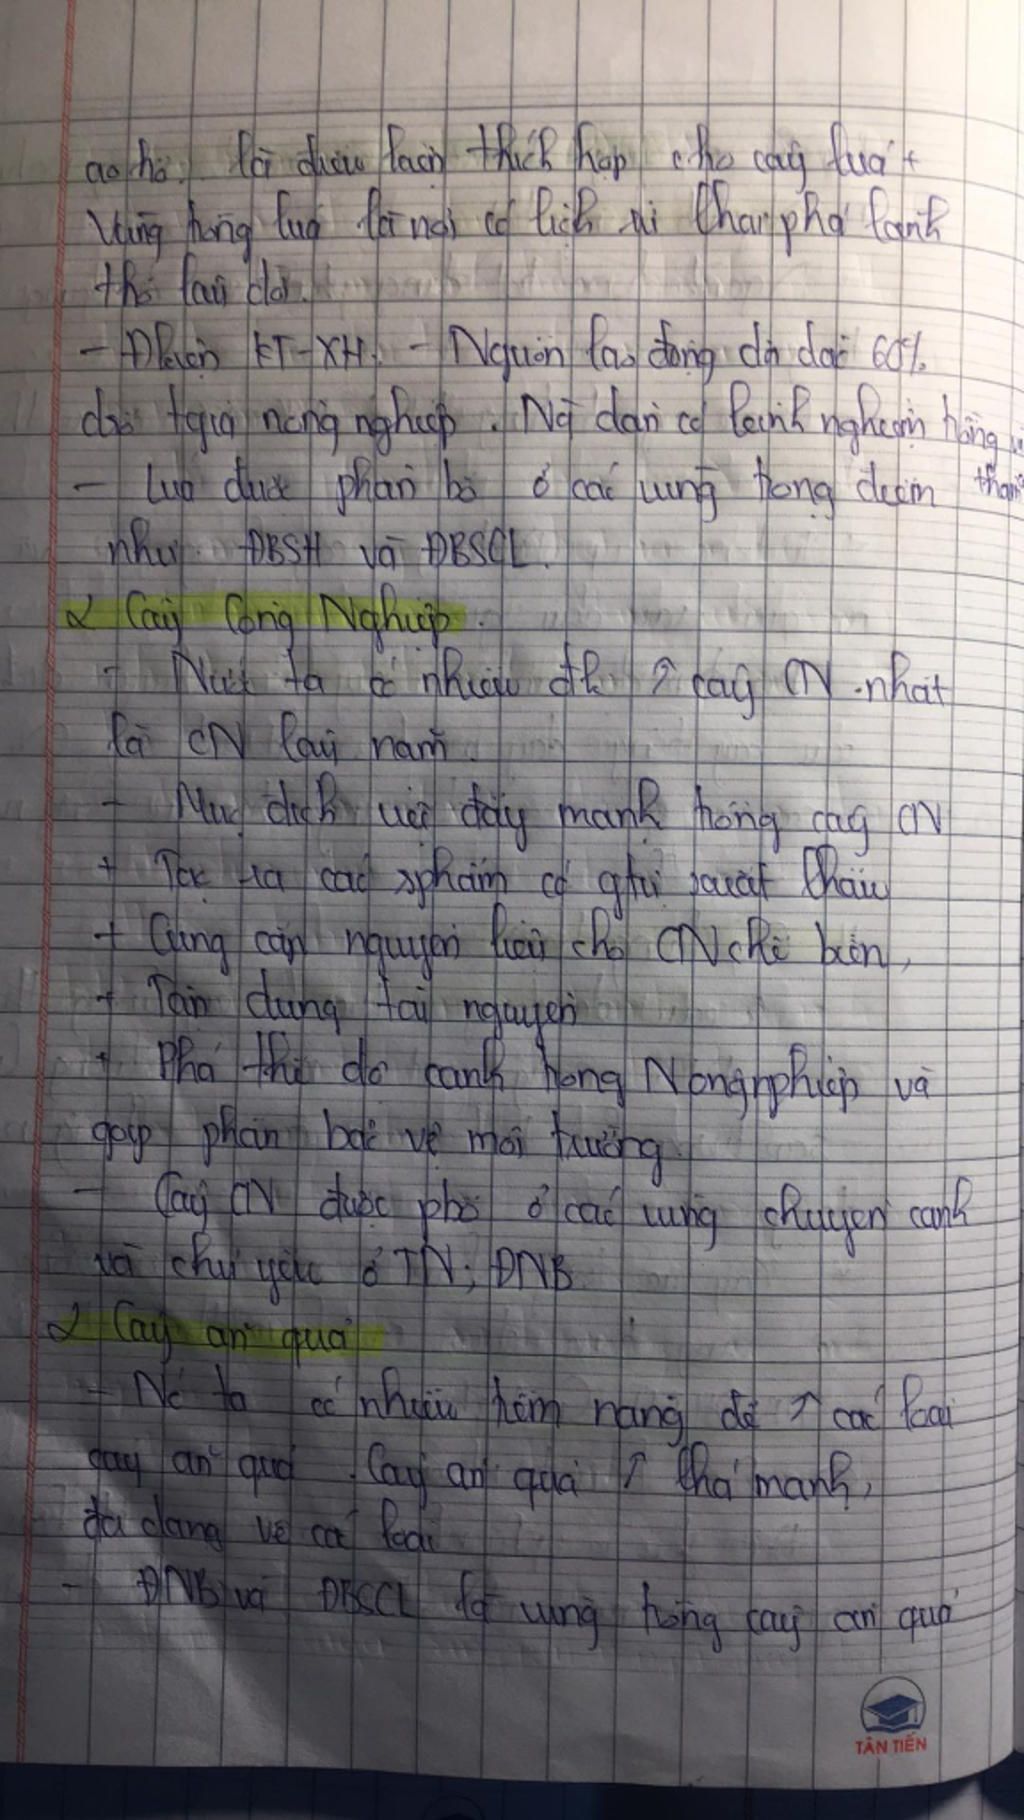 ao hồ. là điều kiện thích hợp cho cây lúa +
Vùng trồng lúa là nơi có lịch sử khai phá lãnh
thổ lâu đời.
- ĐKiện KT-XH. - Nguồn lao động dồi dào 60%
dân tgia nông nghiệp. Nd dân có kinh nghiệm trồng
- Lúa được phân bố ở các vùng trọng điểm
như ĐBSH và ĐBSCL.
2 Cây Công Nghiệp
- Nước ta có nhiều đk ↑ cây CN nhất
là CN lâu năm.
- Mục đích việc đẩy mạnh trồng cây CN
+ Tạo ra các sphẩm có gtrị xuất khẩu
+ Cung cấp nguyên liệu cho CN chế biến,
+ Tận dụng tài nguyên
+ Phá thế độ canh trong Nông nghiệp và
góp phần bảo vệ môi trường.
- Cây CN được phbố ở các vùng chuyên canh
và chủ yếu ở TN, ĐNB
2 Cây ăn quả
- Nc ta có nhiều tiềm năng để ↑ các loại
cây ăn quả. Cây ăn quả ↑ khá mạnh,
đa dạng về các loại
- ĐNB và ĐBSCL là vùng trồng cây ăn quả
TÂN TIẾN